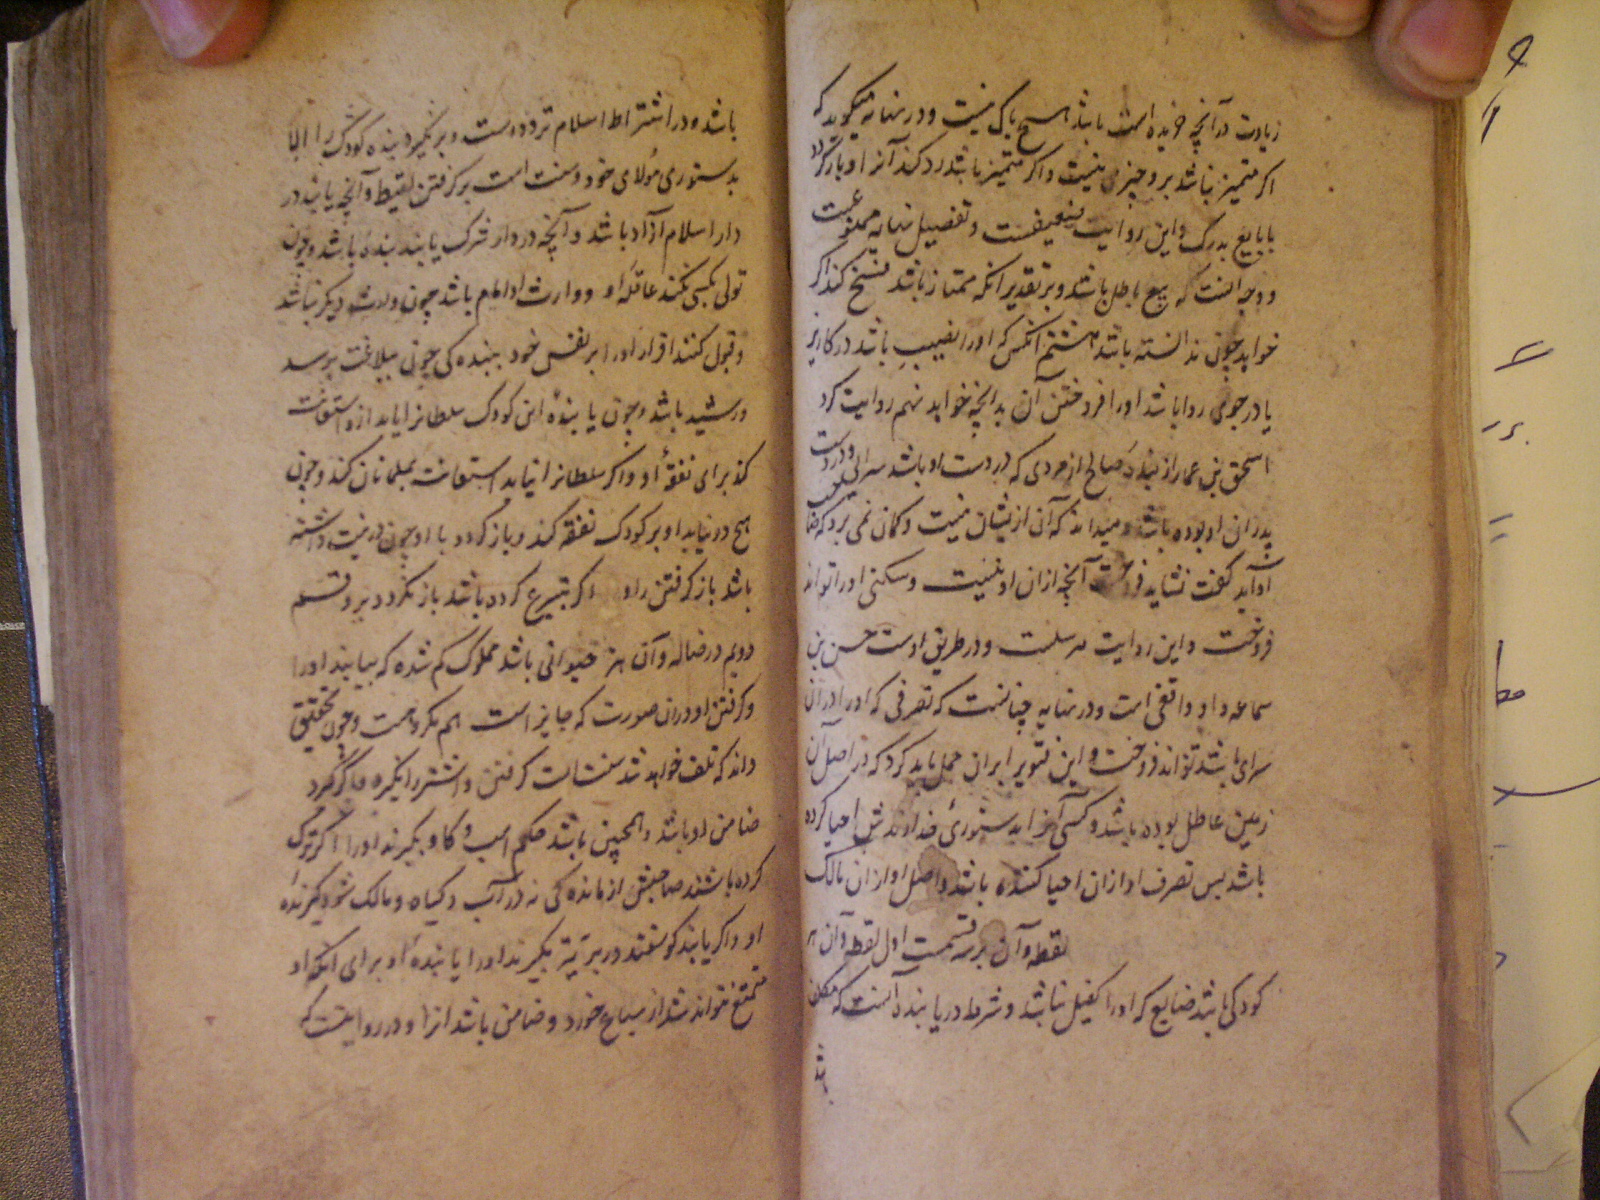 زیادت در آنچه خریده است باشد هیچ باک نیست و در نهایه میگوید که
اکر متمیز نباشد برو چیزی نیست و اکر متمیز باشد رد کند آنرا و باز کردد
با بایع بدرک و این روایت ضعیفست و تفصیل نهایه ممنوعست
و وجه آنست که بیع باطل باشد و بر تقدیر آنکه ممتاز نباشد فسخ کند اکر
خواهد چون ندانسته باشد هشتم آنکس که او را نصیب باشد در کاریز
یا در جوی روا باشد او را فروختن آن بدانچه خواهد نهم روایت کرد
اسحق بن عمار از بندهٔ صالح از مردی که در دست او باشد سرائی و در دست
پدران او بوده باشد و میداند که آن ازیشان نیست و کمان نمی برد که صاحب
او آید کفت نشاید فروخت آنچه از آن او نیست و سکنی او را تواند
فروخت و این روایت مرسلست و در طریق اوست حسن بن
سماعه و او واقفی است و در نهایه چنانست که تصرفی که او را در آن
سرای باشد تواند فروخت و این فتوی را بران حمل باید کرد که در اصل آن
زمین عاطل بوده باشد و کسی آنرا بدستوریٔ خداوندش احیا کرده
باشد پس تصرف او از آن احیا کننده باشد و اصل او از آن مالک
لقطه و آن بر سه قسمت اول لقطه و آن هر
کودکی باشد ضایع که او را کفیل نباشد و شرط در یابنده آنست که مکلف
باشد
باشد و در اشتراط اسلام تردد است و بر نکیرد بنده کودک را الا
بدستوری مولای خود و سنت است بر کرفتن لقیط و آنچه یابند در
دار اسلام آزاد باشد و آنچه در دار شرک یابند بنده باشد و چون
تولی بکسی نکند عاقلهٔ او و وارث او امام باشد چون وارث دیکر نباشد
و قبول کنند اقرار او را بر نفس خود ببنده کی چون ببلاغت برسد
و رشید باشد و چون یابندهٔ این کودک سلطانرا یابد ازو استعانت
کند برای نفقهٔ او و اکر سلطانرا نیابد استعانت بمسلمانان کند و چون
هیچ در نیابد او بر کودک نفقه کند و باز کردد با او چون نیت داشته
باشد باز کرفتن را و اکر تبرع کرده باشد باز نکردد برو قسم
دویم در ضاله و آن هر حیوانی باشد مملوک کم شده که بیابند او را
و کرفتن او در ان صورت که جایز است هم مکروهست و چون تحقیق
داند که تلف خواهد شد سنت است کرفتن و اشتر را نکیرد و اکر کیرد
ضامن او باشد و همچنین باشد حکم اسب و کاو بکیرند او را اکر ترک
کرده باشند صاحبش از مانده کی نه در آب و کیاه و مالک شود کیرندهٔ
او و اکر یابند کوسفند در بریه بکیرند او را یابندهٔ او برای آنکه او
ممتنع نتواند شد از سباع خورد و ضامن باشد آنرا و در روایتست که